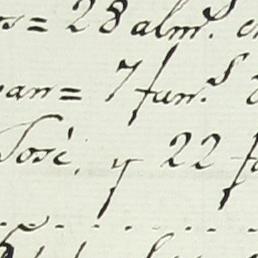 = 28 alm.s
an = 7 fan.s
José, y 22